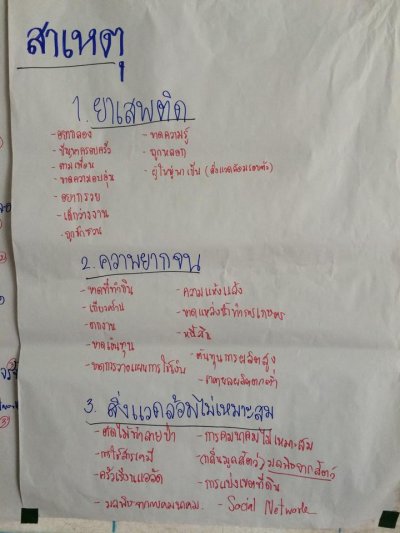 สาเหตุ
1. ยาเสพติด
- อยากลอง
- ปัญหาครอบครัว
- ตามเพื่อน
- ขาดความอบอุ่น
- อยากรวย
- เด็กว่างงาน
- ถูกชักชวน
- ขาดความรู้
- ถูกหลอก
- ผู้ใหญ่พาเป็น (สิ่งแวดล้อมรอบตัว)
2. ความยากจน
- ขาดที่ทำกิน
- เกียจคร้าน
- ตกงาน
- ขาดเงินทุน
- ขาดการวางแผนการใช้เงิน
- ความแห้งแล้ง
- ขาดแหล่งน้ำทำการเกษตร
- หนี้สิน
- ต้นทุนการผลิตสูง
- ราคาผลผลิตตกต่ำ
3. สิ่งแวดล้อมไม่เหมาะสม
- ตัดไม้ทำลายป่า
- การใช้สารเคมี
- ครัวเรือนแออัด
- มลพิษจากการคมนาคม
- การคมนาคมไม่เหมาะสม
(กลิ่นมูลสัตว์) มลพิษจากสัตว์
- การแบ่งเขตที่ดิน
- Social Network